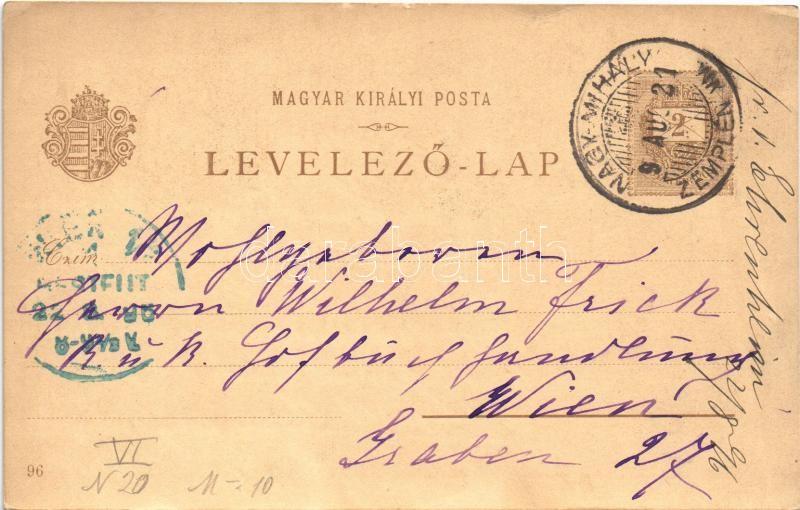 MAGYAR KIRÁLYI POSTA
LEVELEZŐ-LAP
NAGY-MIHÁLY
ZEMPLÉN
9 AU 21
2
WIEN 1
BESTELLT
Czim
Wohlgeboren
Herrn Wilhelm Frick
K u K. Hofbuchhandlung
Wien
Graben 27
darabanth
96
VI
N 20
M-10